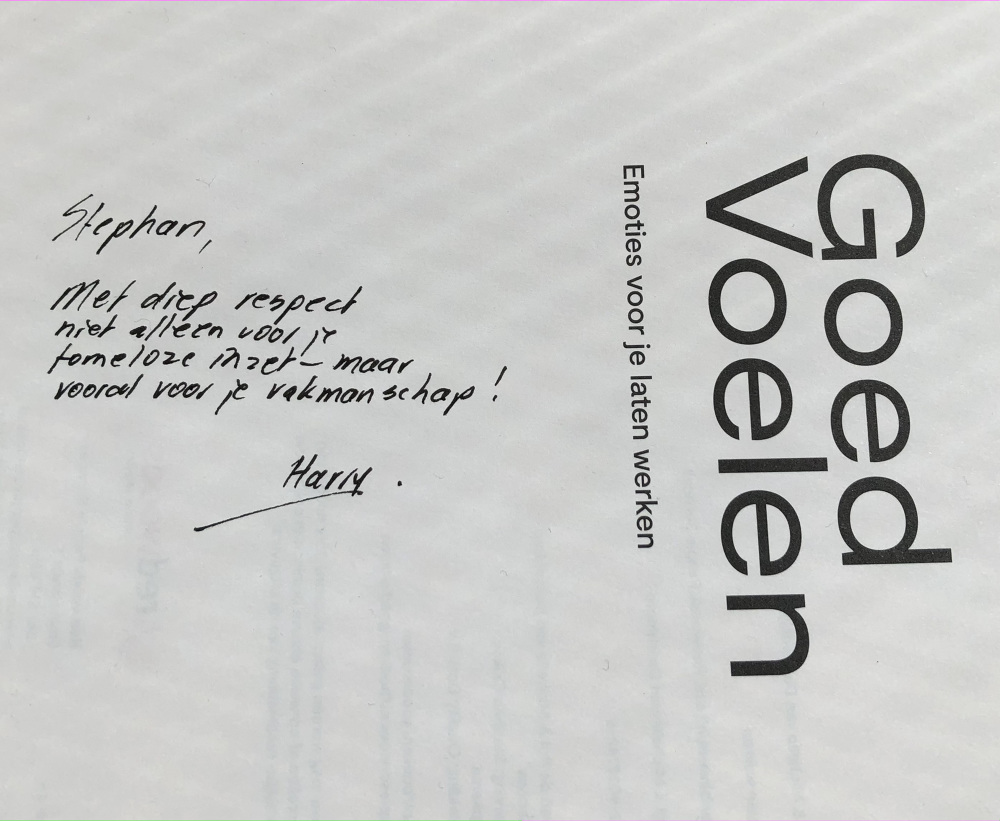 Goed
Voelen
Emoties voor je laten werken
Stephan,
Met diep respect
niet alleen voor je
tomeloze inzet – maar
vooral voor je vakmanschap!
Harry.